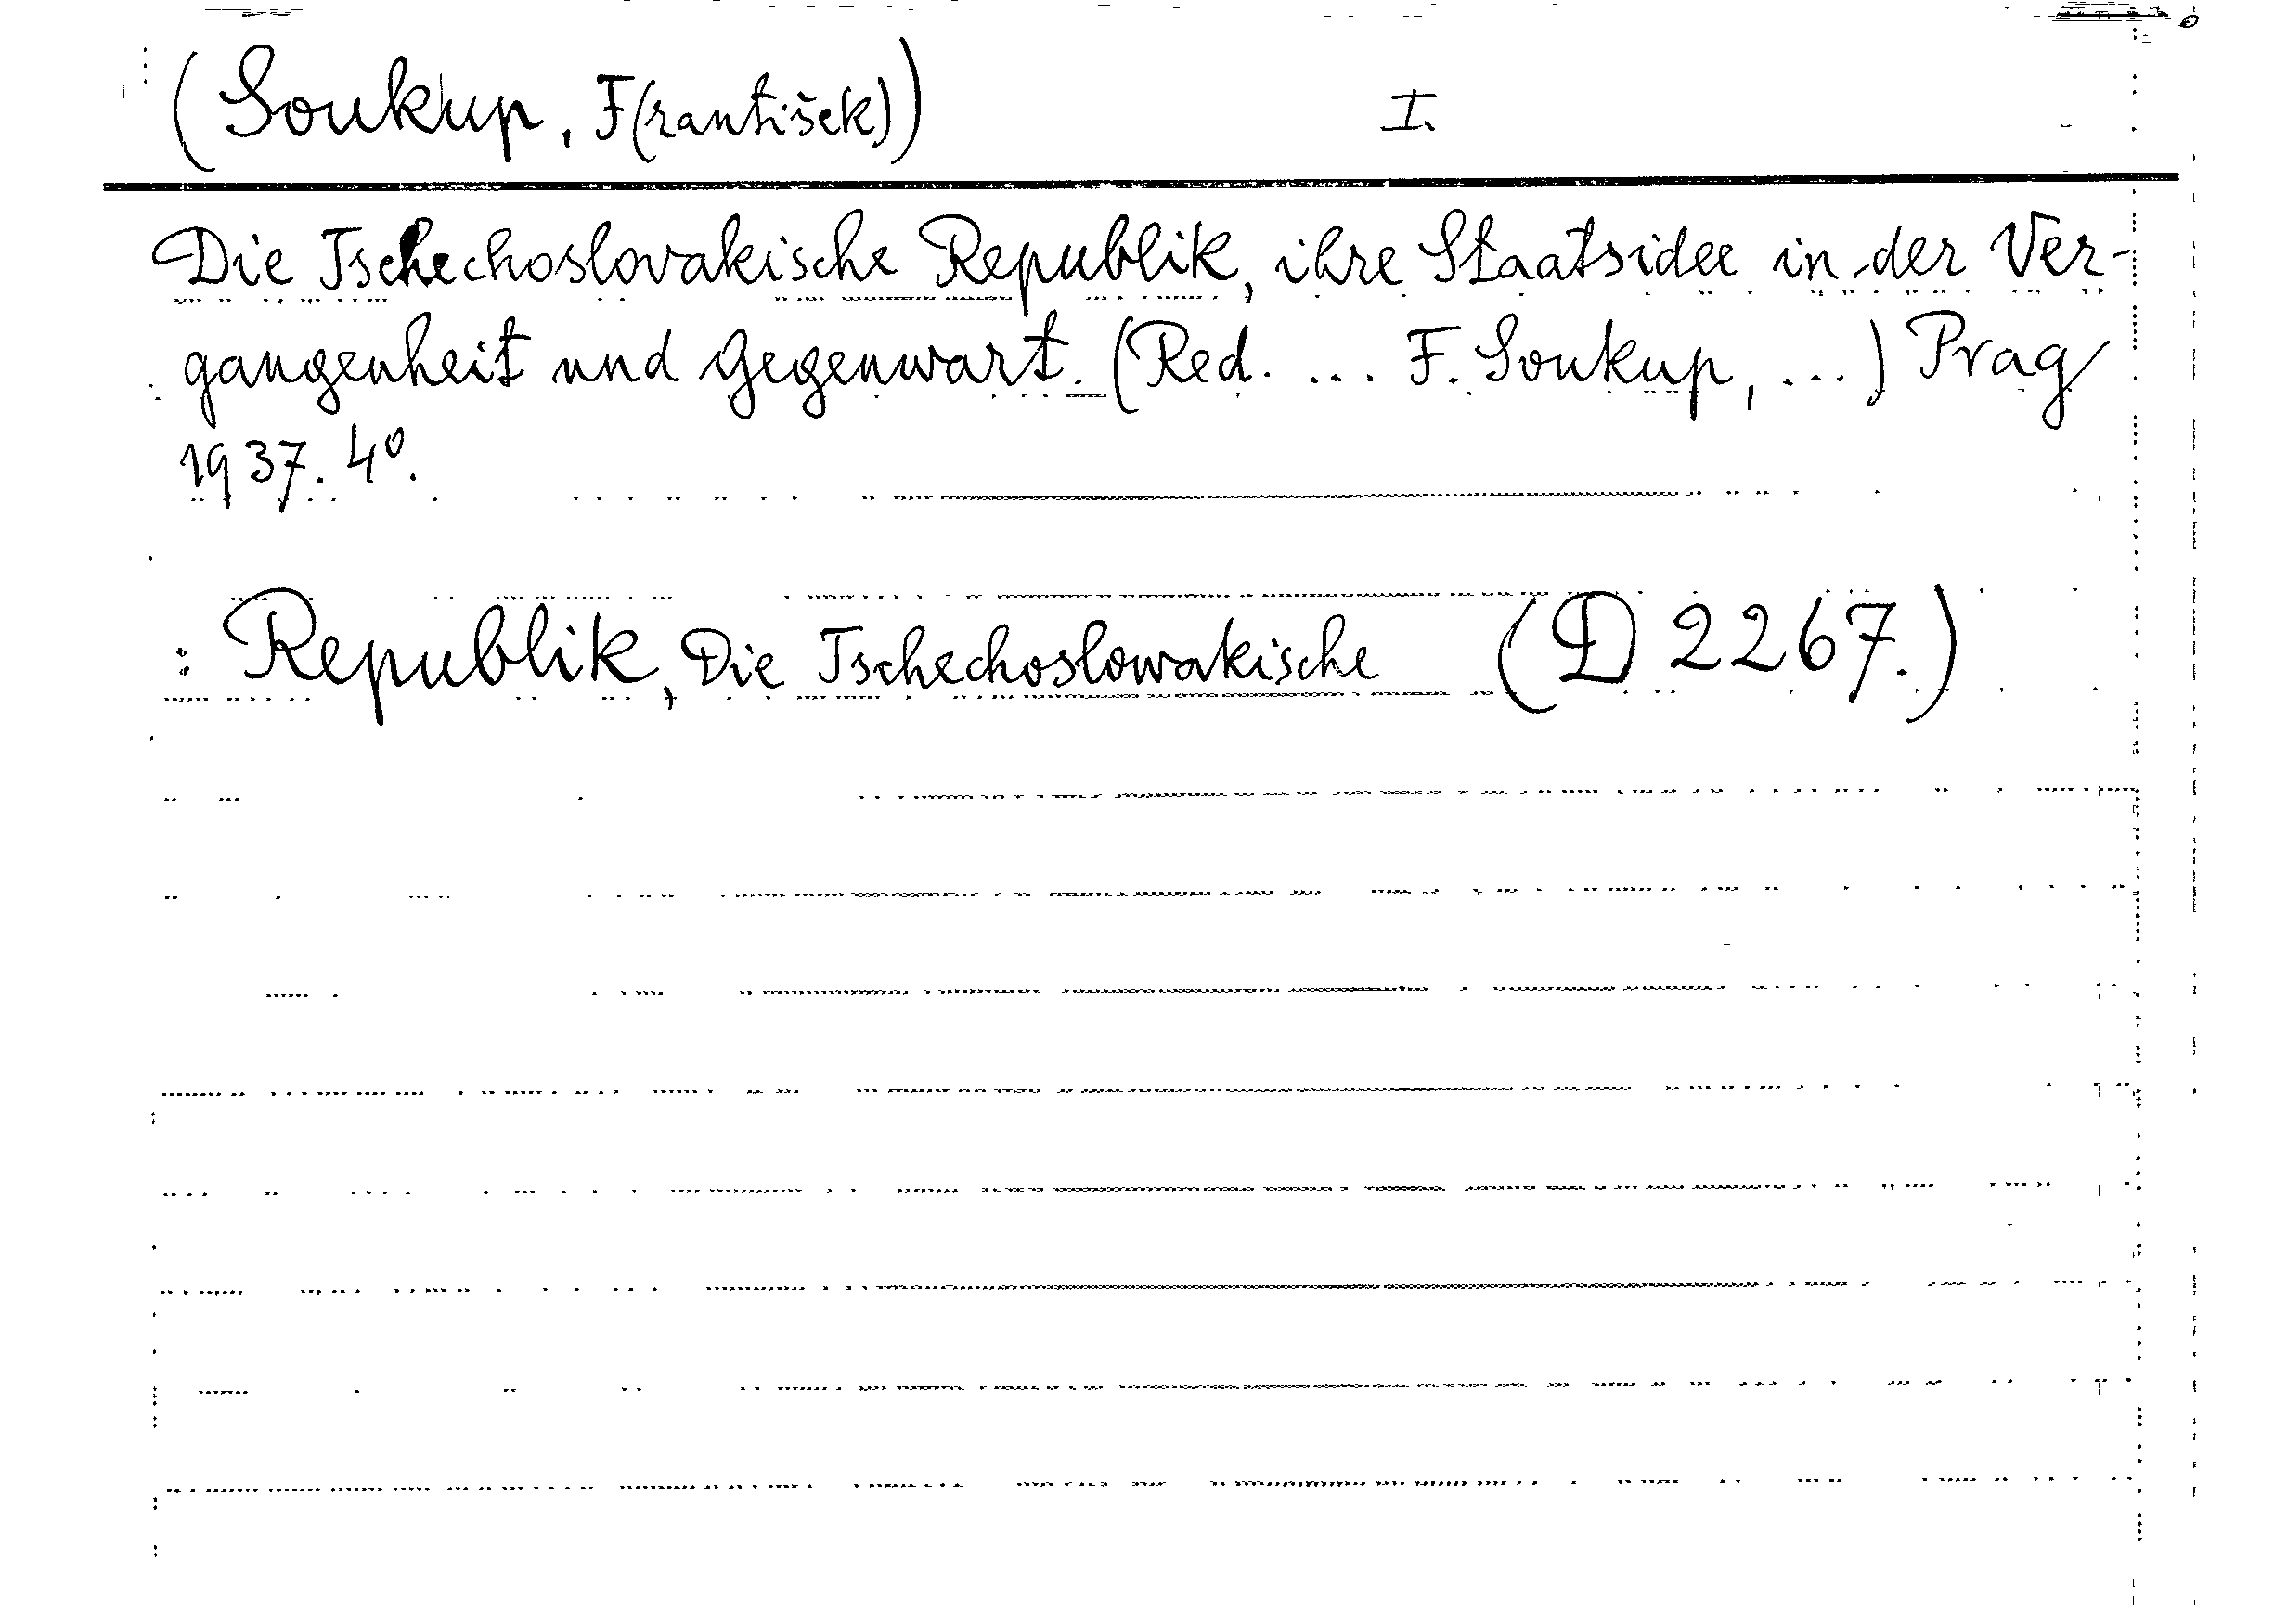 (Soukup, F(rantišek)) I.
Die Tschechoslovakische Republik, ihre Staatsidee in der Ver-
gangenheit und Gegenwart. (Red. ... F. Soukup, ...) Prag
1937. 4º.
: Republik, Die Tschechoslowakische (D 2267.)